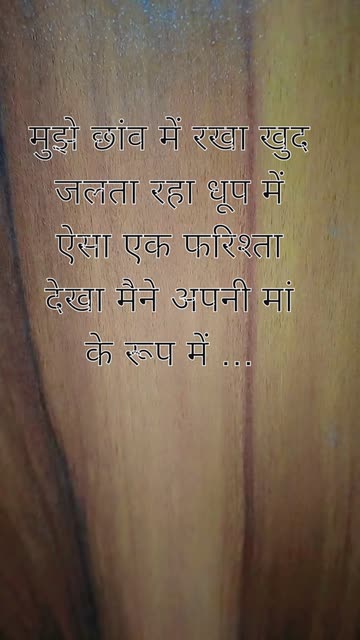 मुझे छांव में रखा खुद
जलता रहा धूप में
ऐसा एक फरिश्ता
देखा मैने अपनी मां
के रूप में ...